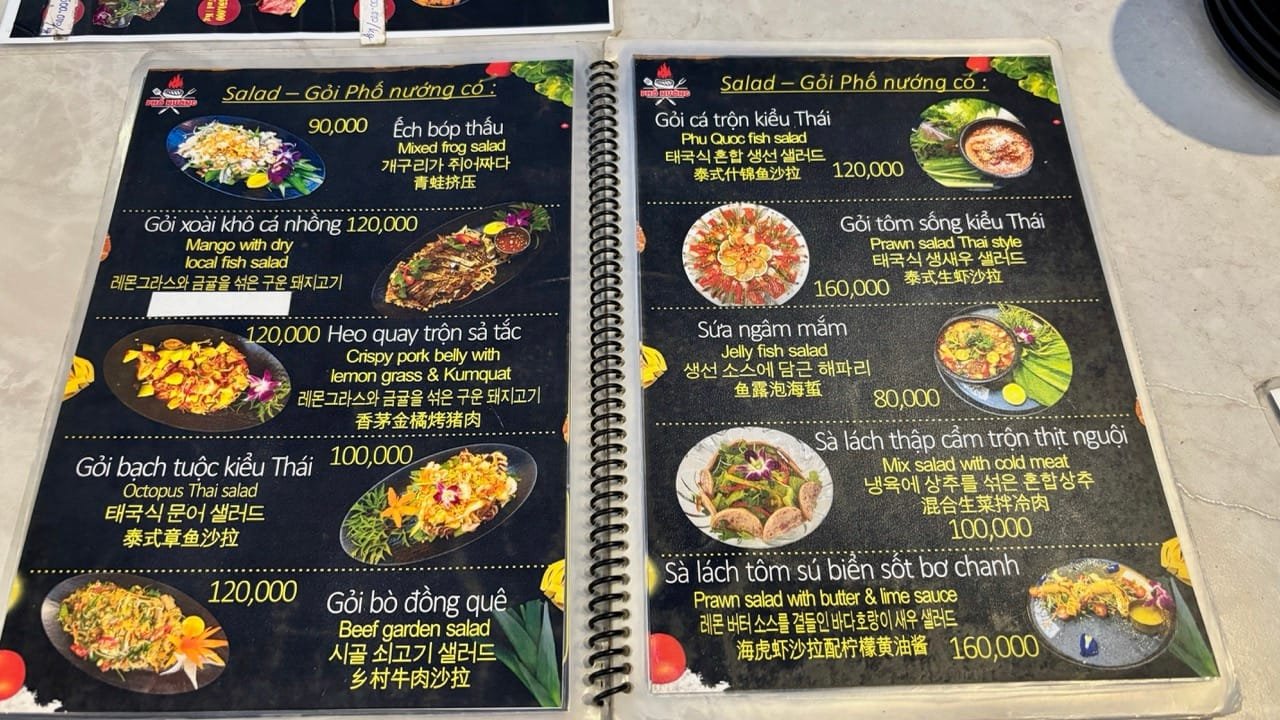 500,000/kg
Salad – Gỏi Phố nướng có :
PHỐ NƯỚNG
90,000
Ếch bóp thấu
Mixed frog salad
개구리가 쥐어짜다
青蛙挤压
Gỏi xoài khô cá nhồng 120,000
Mango with dry
local fish salad
레몬그라스와 금귤을 섞은 구운 돼지고기
120,000 Heo quay trộn sả tắc
Crispy pork belly with
lemon grass & Kumquat
레몬그라스와 금귤을 섞은 구운 돼지고기
香茅金橘烤猪肉
Gỏi bạch tuộc kiểu Thái 100,000
Octopus Thai salad
태국식 문어 샐러드
泰式章鱼沙拉
120,000
Gỏi bò đồng quê
Beef garden salad
시골 쇠고기 샐러드
乡村牛肉沙拉
Salad – Gỏi Phố nướng có :
PHỐ NƯỚNG
Gỏi cá trộn kiểu Thái
Phu Quoc fish salad
태국식 혼합 생선 샐러드
泰式什锦鱼沙拉
120,000
Gỏi tôm sống kiểu Thái
Prawn salad Thai style
태국식 생새우 샐러드
泰式生虾沙拉
160,000
Sứa ngâm mắm
Jelly fish salad
생선 소스에 담근 해파리
鱼露泡海蜇
80,000
Sà lách thập cẩm trộn thit nguội
Mix salad with cold meat
냉육에 상추를 섞은 혼합상추
混合生菜拌冷肉
100,000
Sà lách tôm sú biển sốt bơ chanh
Prawn salad with butter & lime sauce
레몬 버터 소스를 곁들인 바다호랑이 새우 샐러드
海虎虾沙拉配柠檬黄油酱
160,000